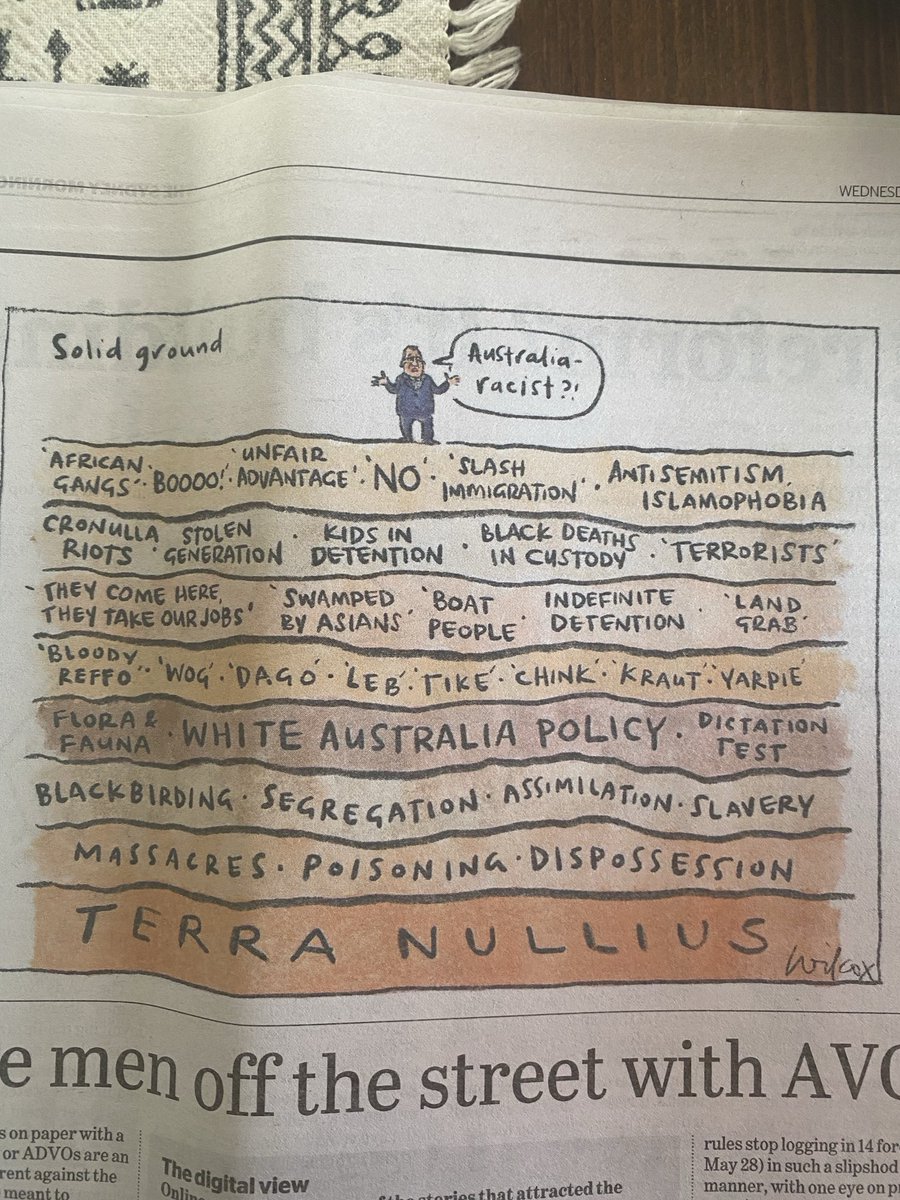 WEDNESD
Solid ground
Australia-
racist?!
'AFRICAN
GANGS' · BOOOO! · 'UNFAIR
ADVANTAGE' · 'NO' · 'SLASH
IMMIGRATION' · ANTISEMITISM,
ISLAMOPHOBIA
CRONULLA
RIOTS · STOLEN
GENERATION · KIDS IN
DETENTION · BLACK DEATHS
IN CUSTODY · 'TERRORISTS'
'THEY COME HERE,
THEY TAKE OUR JOBS' 'SWAMPED
BY ASIANS' 'BOAT
PEOPLE' INDEFINITE
DETENTION · 'LAND
GRAB'
'BLOODY
REFFO' · 'WOG' · 'DAGO' · 'LEB' · 'TIKE' · 'CHINK' · 'KRAUT' · 'YARPIE'
FLORA &
FAUNA · WHITE AUSTRALIA POLICY · DICTATION
TEST
BLACKBIRDING · SEGREGATION · ASSIMILATION · SLAVERY
MASSACRES · POISONING · DISPOSSESSION
TERRA NULLIUS
Wilcox
e men off the street with AVO
s on paper with a
or ADVOs are an
rent against the
meant to
The digital view
Online
the stories that attracted the
rules stop logging in 14 for
May 28) in such a slipshod
manner, with one eye on p